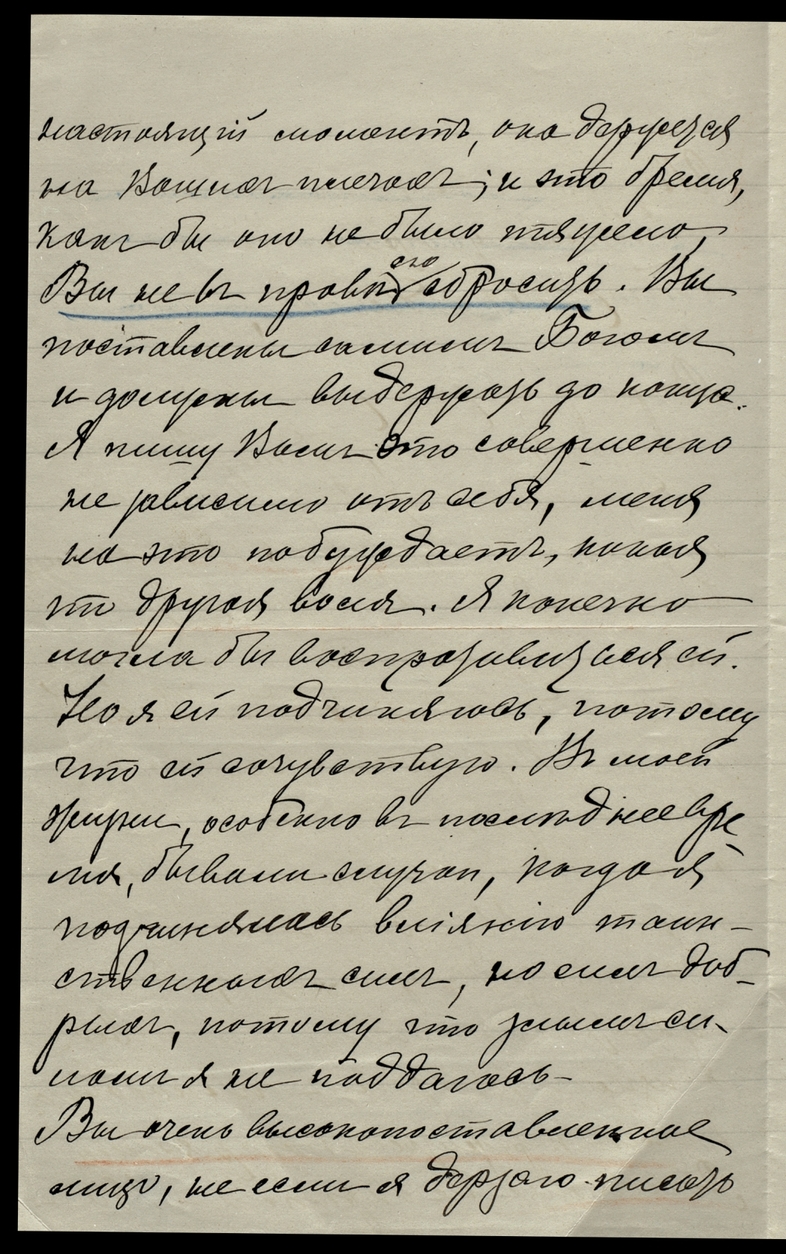 настоящій моментъ, она держится
на Вашихъ плечахъ; и это бремя,
какъ бы оно не было тяжело,
Вы не въ правѣ его сбросить. Вы
поставлены самимъ Богомъ
и должны выдержать до конца.
Я пишу Вамъ это совершенно
не зависимо отъ себя, меня
на это побуждаетъ, какая
то другая воля. Я конечно
могла бы воспротивиться ей.
Но я ей подчиняюсь, потому
что ей сочувствую. Въ моей
жизни, особенно въ послѣднее вре
мя, бывали случаи, когда я
подчинялась вліянію таин-
ственныхъ силъ, но силъ доб-
рыхъ, потому что злымъ си-
ламъ я не поддаюсь-
Вы очень высокопоставленное
лицо, не если я дерзаю писать